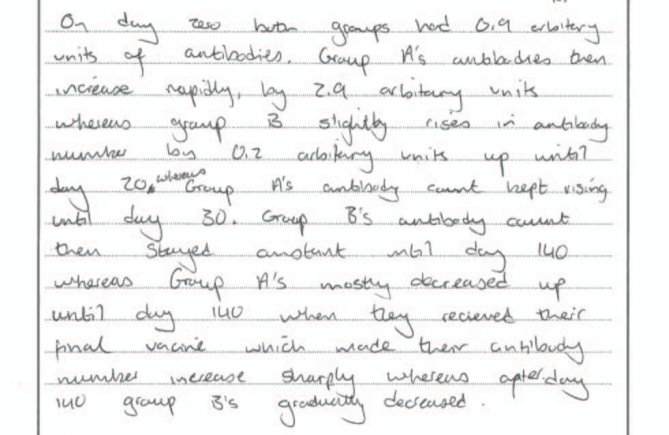 On day zero both groups had 0.9 arbitery
units of antibodies. Group A's antibodies then
increase rapidly, by 2.9 arbitary units
whereas group B slightly rises in antibody
number by 0.2 arbitary units up until
day 20, whereas Group A's antibody count kept rising
until day 30. Group B's antibody count
then stayed constant until day 140
whereas Group A's mostly decreased up
until day 140 when they recieved their
final vaccine which made their antibody
number increase sharply whereas after day
140 group B's gradually decreased.